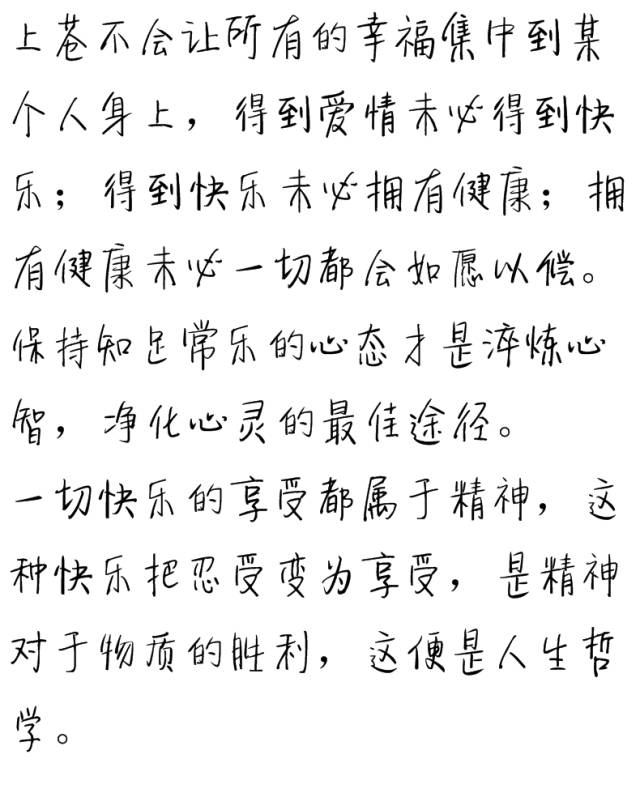 上苍不会让所有的幸福集中到某
个人身上，得到爱情未必得到快
乐；得到快乐未必拥有健康；拥
有健康未必一切都会如愿以偿。
保持知足常乐的心态才是淬炼心
智，净化心灵的最佳途径。
一切快乐的享受都属于精神，这
种快乐把忍受变为享受，是精神
对于物质的胜利，这便是人生哲
学。